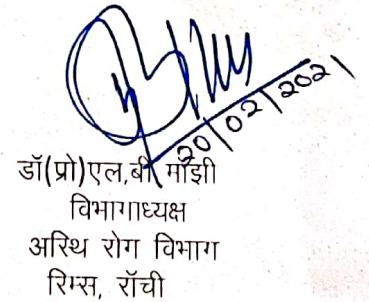 20/02/2021
डॉ(प्रो)एल,बी माँझी
विभागाध्यक्ष
अस्थि रोग विभाग
रिम्स, राँची